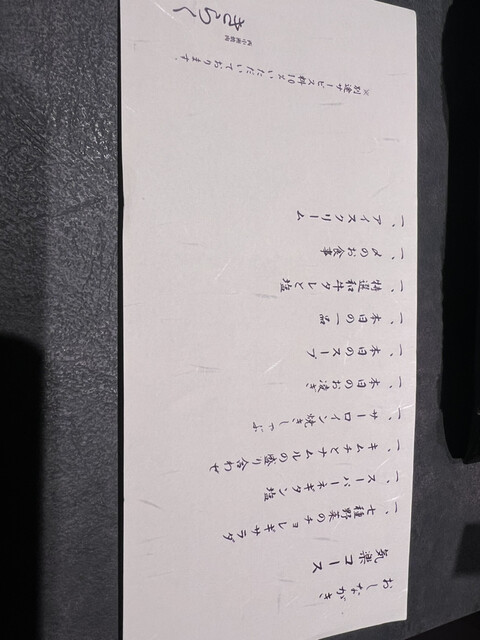 おしながき
気楽コース
一、七種野菜のチョレギサラダ
一、スーパーネギタン塩
一、キムチとナムルの盛り合わせ
一、サーロイン焼きしゃぶ
一、本日のお凌ぎ
一、本日のスープ
一、本日の一品
一、特選和牛タレと塩
一、〆のお食事
一、アイスクリーム
※別途サービス料10%いただいております。
きらく